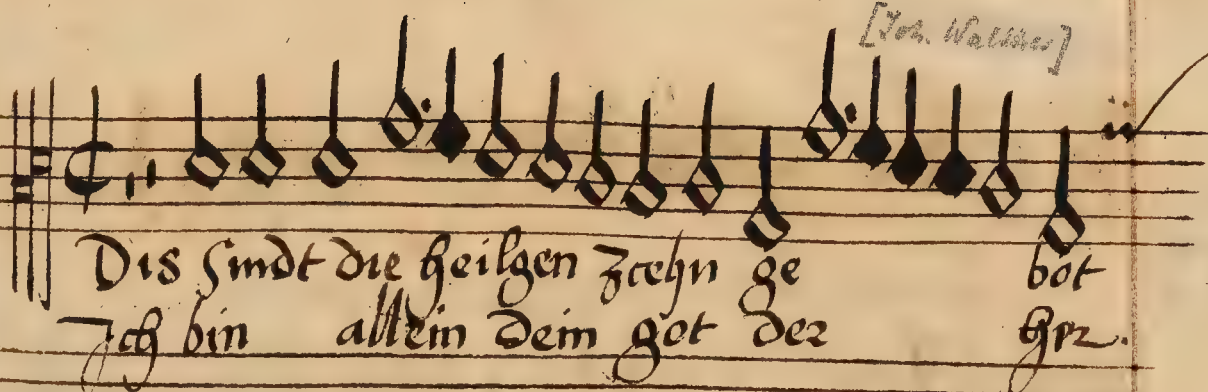 [Joh. Walther]
Dis sindt die heilgen zcehn ge bot
Ich bin allein dein got der her.